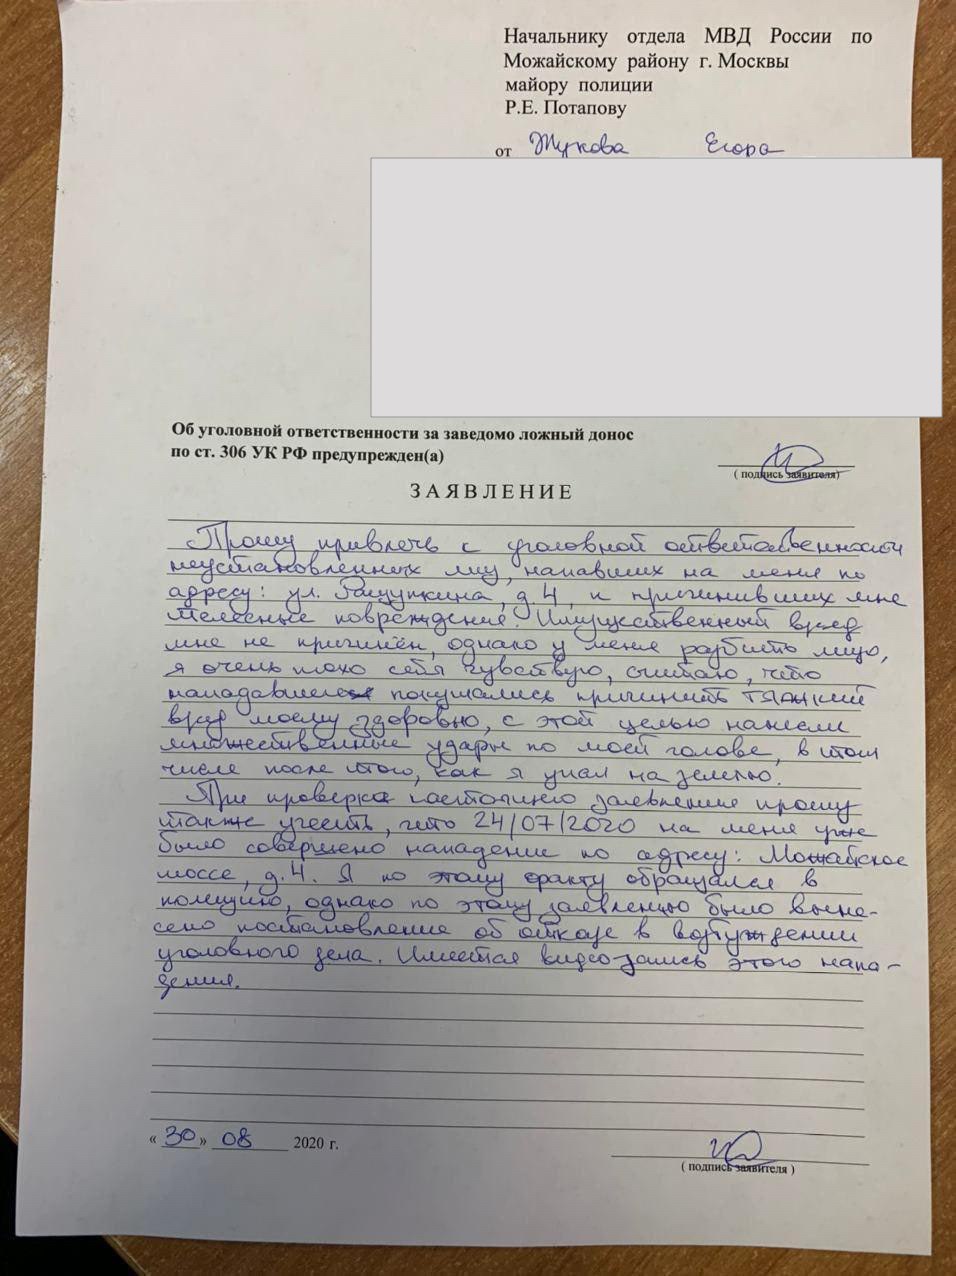 Начальнику отдела МВД России по
Можайскому району г. Москвы
майору полиции
Р.Е. Потапову
от Жукова Егора
Об уголовной ответственности за заведомо ложный донос
по ст. 306 УК РФ предупрежден(а)
( подпись заявителя)
ЗАЯВЛЕНИЕ
Прошу привлечь к уголовной ответственности
неустановленных лиц, напавших на меня по
адресу: ул. Ращупкина, д. 4, и причинивших мне
телесные повреждения. Имущественный вред
мне не причинён, однако у меня разбито лицо,
я очень плохо себя чувствую, считаю, что
нападавшие покушались причинить тяжкий
вред моему здоровью, с этой целью нанесли
множественные удары по моей голове, в том
числе после того, как я упал на землю.
При проверке настоящего заявления прошу
также учесть, что 24/07/2020 на меня уже
было совершено нападение по адресу: Можайское
шоссе, д. 4. Я по этому факту обращался в
полицию, однако по этому заявлению было выне-
сено постановление об отказе в возбуждении
уголовного дела. Имеется видеозапись этого напа-
дения.
« 30 » 08 2020 г.
( подпись заявителя )